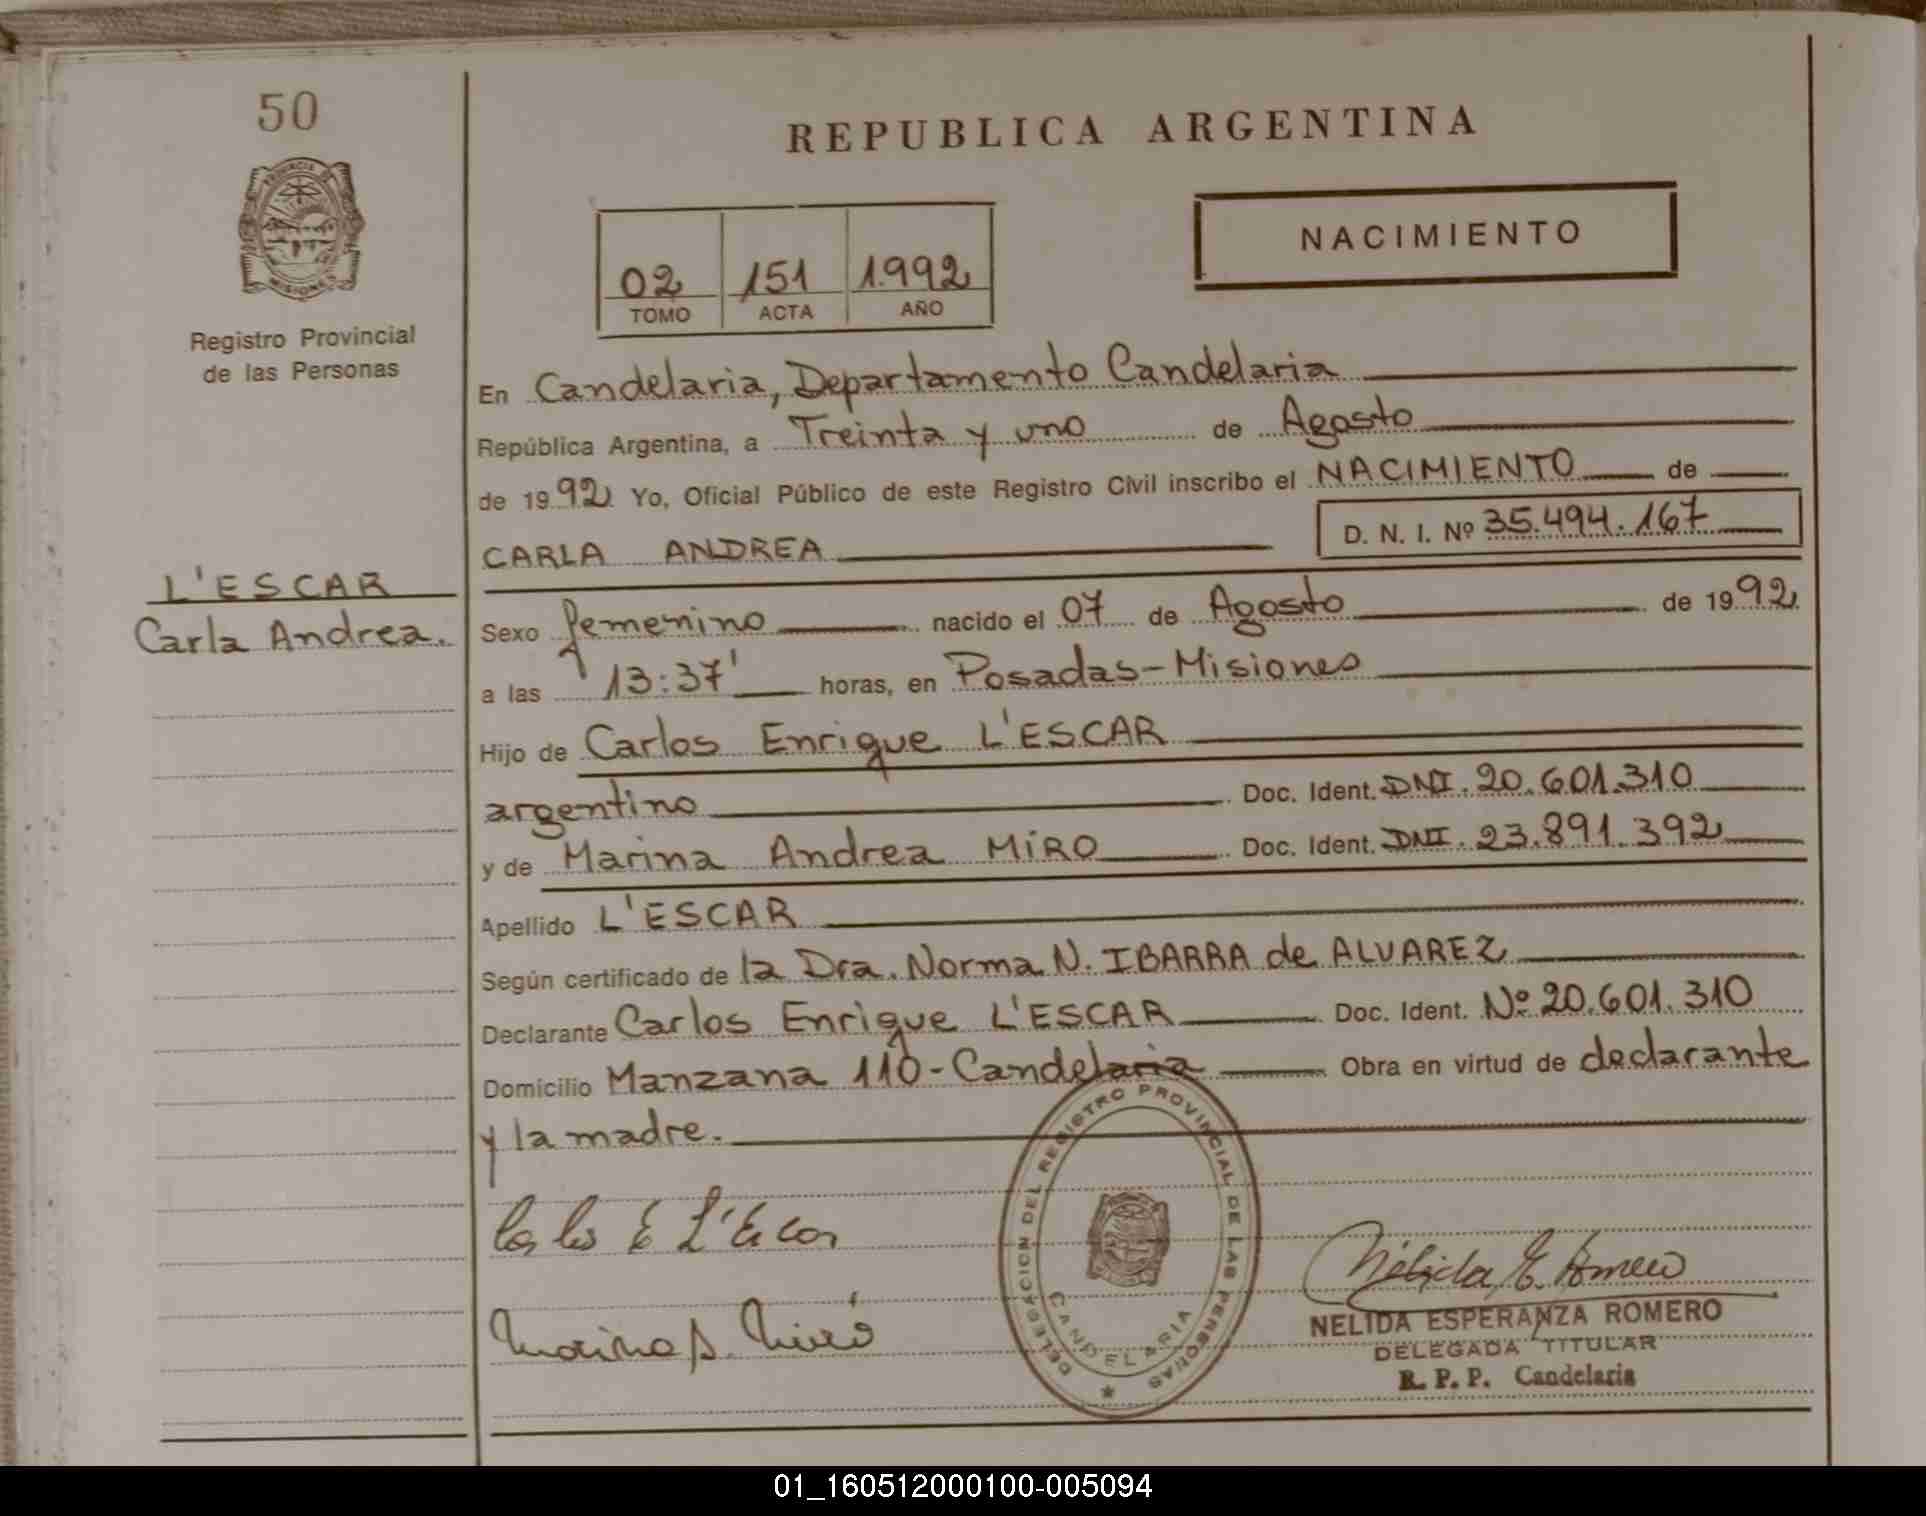 50
REPUBLICA ARGENTINA
PROVINCIA DE
MISIONES
NACIMIENTO
02 151 1.992
TOMO ACTA AÑO
Registro Provincial
de las Personas
En Candelaria, Departamento Candelaria
República Argentina, a Treinta y uno de Agosto
de 1992 Yo, Oficial Público de este Registro Civil inscribo el NACIMIENTO de
D. N. I. Nº 35.494.167
CARLA ANDREA
L'ESCAR
Carla Andrea.
Sexo femenino nacido el 07 de Agosto de 1992
a las 13:37' horas, en Posadas-Misiones
Hijo de Carlos Enrique L'ESCAR
argentino Doc. Ident. DNI. 20.601.310
y de Marina Andrea MiRO Doc. Ident. DNI. 23.891.392
Apellido L'ESCAR
Según certificado de la Dra. Norma N. IBARRA de ALVAREZ
Declarante Carlos Enrique L'ESCAR Doc. Ident. Nº 20.601.310
Domicilio Manzana 110-Candelaria Obra en virtud de declarante
y la madre.
DELEGACION DEL REGISTRO PROVINCIAL DE LAS PERSONAS
CANDELARIA
Carlos E L'Escar
Marina A. Miró
Nélida E. Romero
NELIDA ESPERANZA ROMERO
DELEGADA TITULAR
R. P. P. Candelaria
01_160512000100-005094